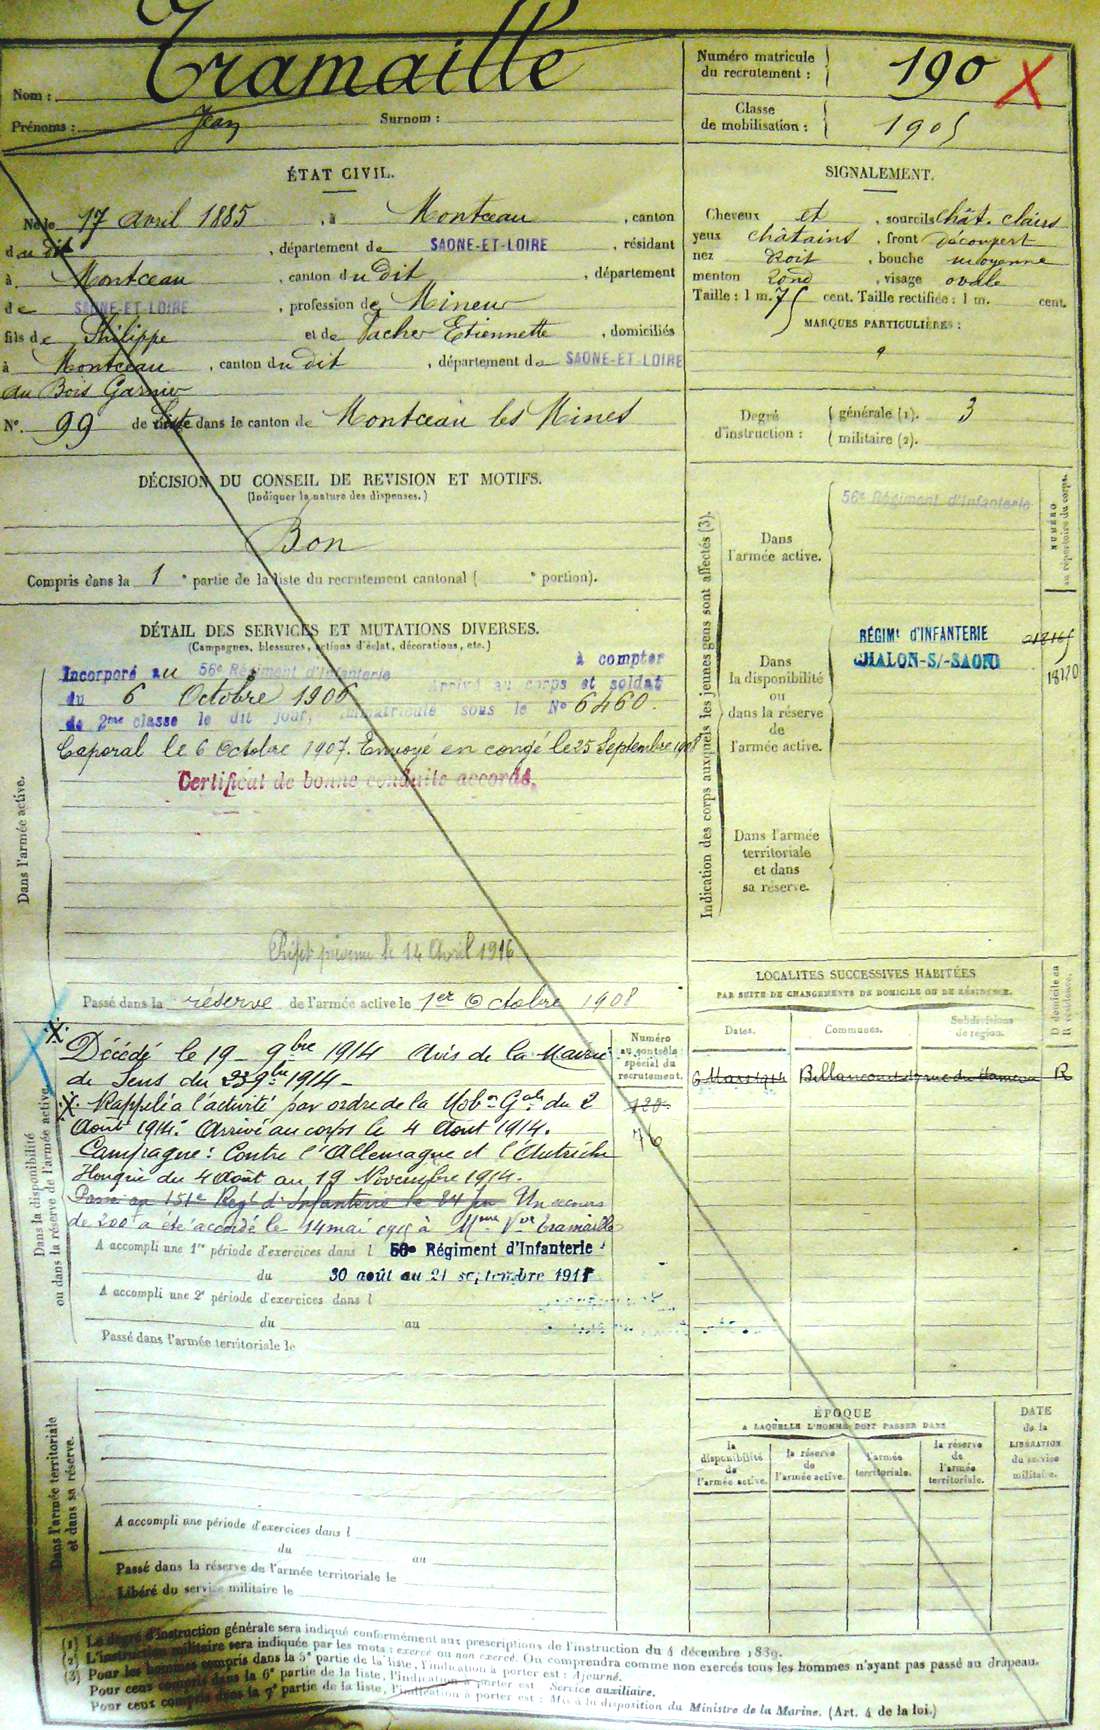 Nom : Tramaille
Prénoms : Jean Surnom :
Numéro matricule
du recrutement : 190 X
Classe
de mobilisation : 1905
ÉTAT CIVIL.
Né le 17 avril 1885, à Montceau, canton
du dit, département de SAONE-ET-LOIRE, résidant
à Montceau, canton du dit, département
de SAONE-ET-LOIRE, profession de Mineur
fils de Philippe et de Vacher Etiennette, domiciliés
à Montceau, canton du dit, département de SAONE-ET-LOIRE
au Bois Garnier
N° 99 de Liste dans le canton de Montceau les Mines
SIGNALEMENT.
Cheveux et, sourcils chât. clairs
yeux châtains, front découvert
nez Droit, bouche moyenne
menton rond, visage ovale
Taille : 1 m. 75 cent. Taille rectifiée : 1 m. cent.
MARQUES PARTICULIÈRES :
Degré
d'instruction :
générale (1). 3
militaire (2).
DÉCISION DU CONSEIL DE REVISION ET MOTIFS.
(Indiquer la nature des dispenses.)
Bon
Compris dans la 1e partie de la liste du recrutement cantonal ( e portion).
DÉTAIL DES SERVICES ET MUTATIONS DIVERSES.
(Campagnes, blessures, actions d'éclat, décorations, etc.)
Dans l'armée active.
Incorporé au 56e Régiment d'Infanterie à compter
du 6 Octobre 1906 Arrivé au corps et soldat
de 2me classe le dit jour, immatriculé sous le No 6460.
Caporal le 6 octobre 1907. Envoyé en congé le 25 Septembre 1908
Certificat de bonne conduite accordé.
le 14 Avril 1916
Passé dans la réserve de l'armée active le 1er Octobre 1908
Indication des corps auxquels les jeunes gens sont affectés (3).
NUMÉRO
au répertoire du corps.
Dans
l'armée active.
56e Régiment d'Infanterie
Dans
la disponibilité
ou
dans la réserve
de
l'armée active.
RÉGIMt d'INFANTERIE
CHALON-S/-SAONE
18170
Dans l'armée
territoriale
et dans
sa réserve.
Dans la disponibilité
ou dans la réserve de l'armée active.
Numéro
au contrôle
spécial du
recrutement.
76
Décédé le 19 9bre 1914 Avis de la Mairie
de Sens du 23 9bre 1914
Rappelé à l'activité par ordre de la Mobon Gale du 2
Août 1914. Arrivé au corps le 4 Août 1914.
Campagne : Contre l'Allemagne et l'Autriche
Hongrie du 4 Août au 19 Novembre 1914.
Passé au 151e Regt d'Infanterie le 24 Un secours
de 200 a été accordé le 14 mai 1915 à Mme Vve Tramaille
A accompli une 1re période d'exercices dans l 56e Régiment d'Infanterie
du 30 août au 21 septembre 1911
A accompli une 2e période d'exercices dans l
du au
Passé dans l'armée territoriale le
LOCALITES SUCCESSIVES HABITÉES
PAR SUITE DE CHANGEMENTS DE DOMICILE OU DE RÉSIDENCE.
D domicile ou
R résidence.
Dates. Communes. Subdivisions
de région.
6 Mars 1914 Billancourt rue du R
ÉPOQUE
A LAQUELLE L'HOMME DOIT PASSER DANS
la
disponibilité
de
l'armée active.
la réserve
de
l'armée active.
l'armée
territoriale.
la réserve
de
l'armée
territoriale.
DATE
de la
LIBÉRATION
du service
militaire.
Dans l'armée territoriale
et dans sa réserve.
A accompli une période d'exercices dans l
du au
Passé dans la réserve de l'armée territoriale le
Libéré du service militaire le
(1) Le degré d'instruction générale sera indiqué conformément aux prescriptions de l'instruction du 4 décembre 1889.
(2) L'instruction militaire sera indiquée par les mots : exercé ou non exercé. On comprendra comme non exercés tous les hommes n'ayant pas passé au drapeau.
(3) Pour les hommes compris dans la 5e partie de la liste, l'indication à porter est : Ajourné.
Pour ceux compris dans la 6e partie de la liste, l'indication à porter est Service auxiliaire.
Pour ceux compris dans la 7e partie de la liste, l'indication à porter est : Mis à la disposition du Ministre de la Marine. (Art. 4 de la loi.)